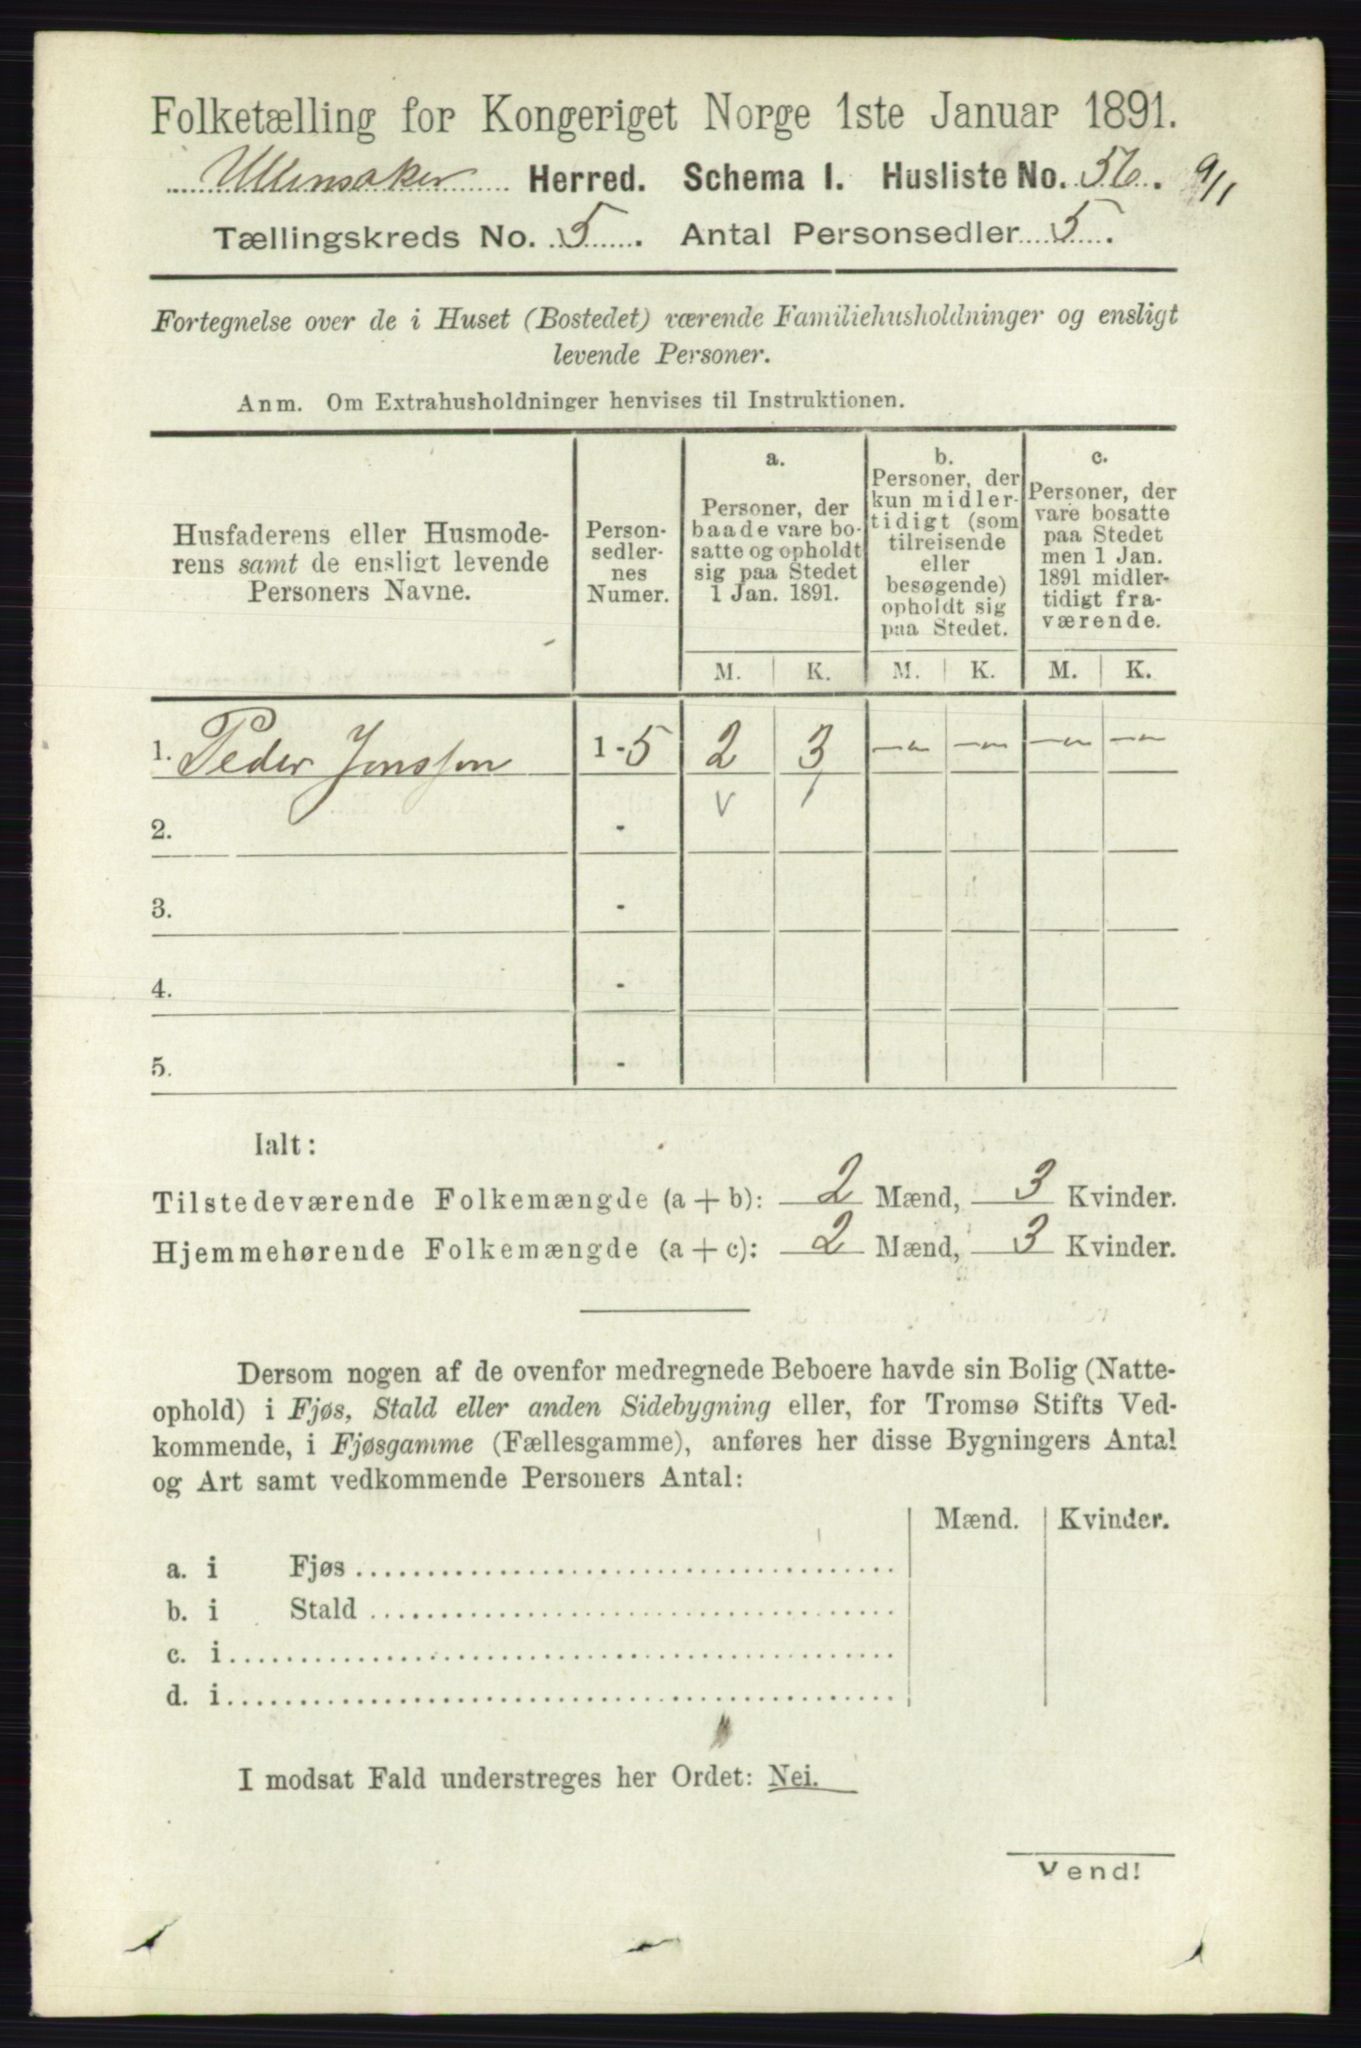 Folketælling for Kongeriget Norge 1ste Januar 1891.
Ullensaker Herred. Schema I. Husliste No. 56. 9/1
Tællingskreds No. 5. Antal Personsedler 5.
Fortegnelse over de i Huset (Bostedet) værende Familiehusholdninger og ensligt
levende Personer.
Anm. Om Extrahusholdninger henvises til Instruktionen.
Husfaderens eller Husmode-
rens samt de ensligt levende
Personers Navne.
Person-
sedler-
nes
Numer.
a.
Personer, der
baade vare bo-
satte og opholdt
sig paa Stedet
1 Jan. 1891.
b.
Personer, der
kun midler-
tidigt (som
tilreisende
eller
besøgende)
opholdt sig
paa Stedet.
c.
Personer, der
vare bosatte
paa Stedet
men 1 Jan.
1891 midler-
tidigt fra-
værende.
M. K. M. K. M. K.
1. Peder Jonsson 1-5 2 3 — — — —
2. -
3. -
4. -
5. -
Ialt:
Tilstedeværende Folkemængde (a + b): 2 Mænd, 3 Kvinder.
Hjemmehørende Folkemængde (a + c): 2 Mænd, 3 Kvinder.
Dersom nogen af de ovenfor medregnede Beboere havde sin Bolig (Natte-
ophold) i Fjøs, Stald eller anden Sidebygning eller, for Tromsø Stifts Ved-
kommende, i Fjøsgamme (Fællesgamme), anføres her disse Bygningers Antal
og Art samt vedkommende Personers Antal:
Mænd. Kvinder.
a. i Fjøs
b. i Stald
c. i
d. i
I modsat Fald understreges her Ordet: Nei.
Vend!